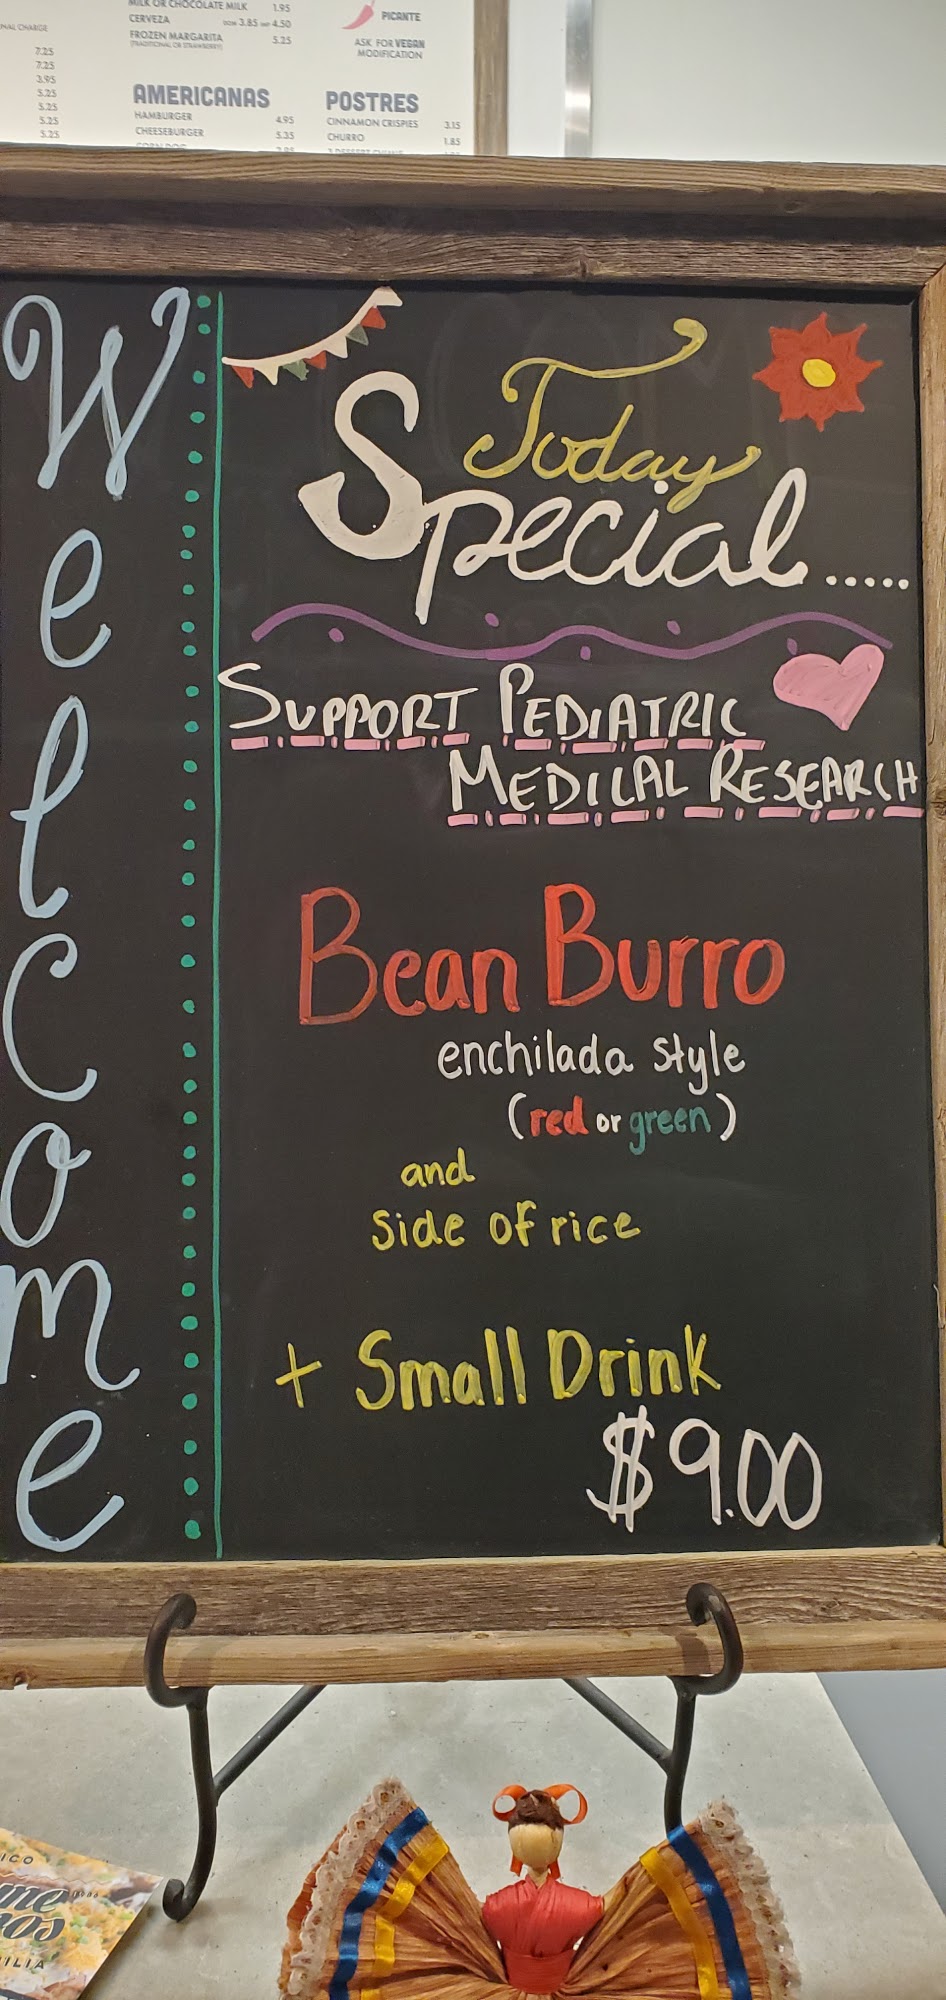 MILK OR CHOCOLATE MILK 1.95
CERVEZA DOM 3.85 IMP 4.50
FROZEN MARGARITA 5.25
(TRADITIONAL OR STRAWBERRY)
PICANTE
ASK FOR VEGAN
MODIFICATION
CHARGE
7.25
7.25
3.95
5.25
5.25
5.25
5.25
AMERICANAS
HAMBURGER 4.95
CHEESEBURGER 5.35
POSTRES
CINNAMON CRISPIES 3.15
CHURRO 1.85
Welcome
Today
Special.....
SUPPORT PEDIATRIC
MEDICAL RESEARCH
Bean Burro
enchilada style
(red or green)
and
side of rice
+ Small Drink
$9.00